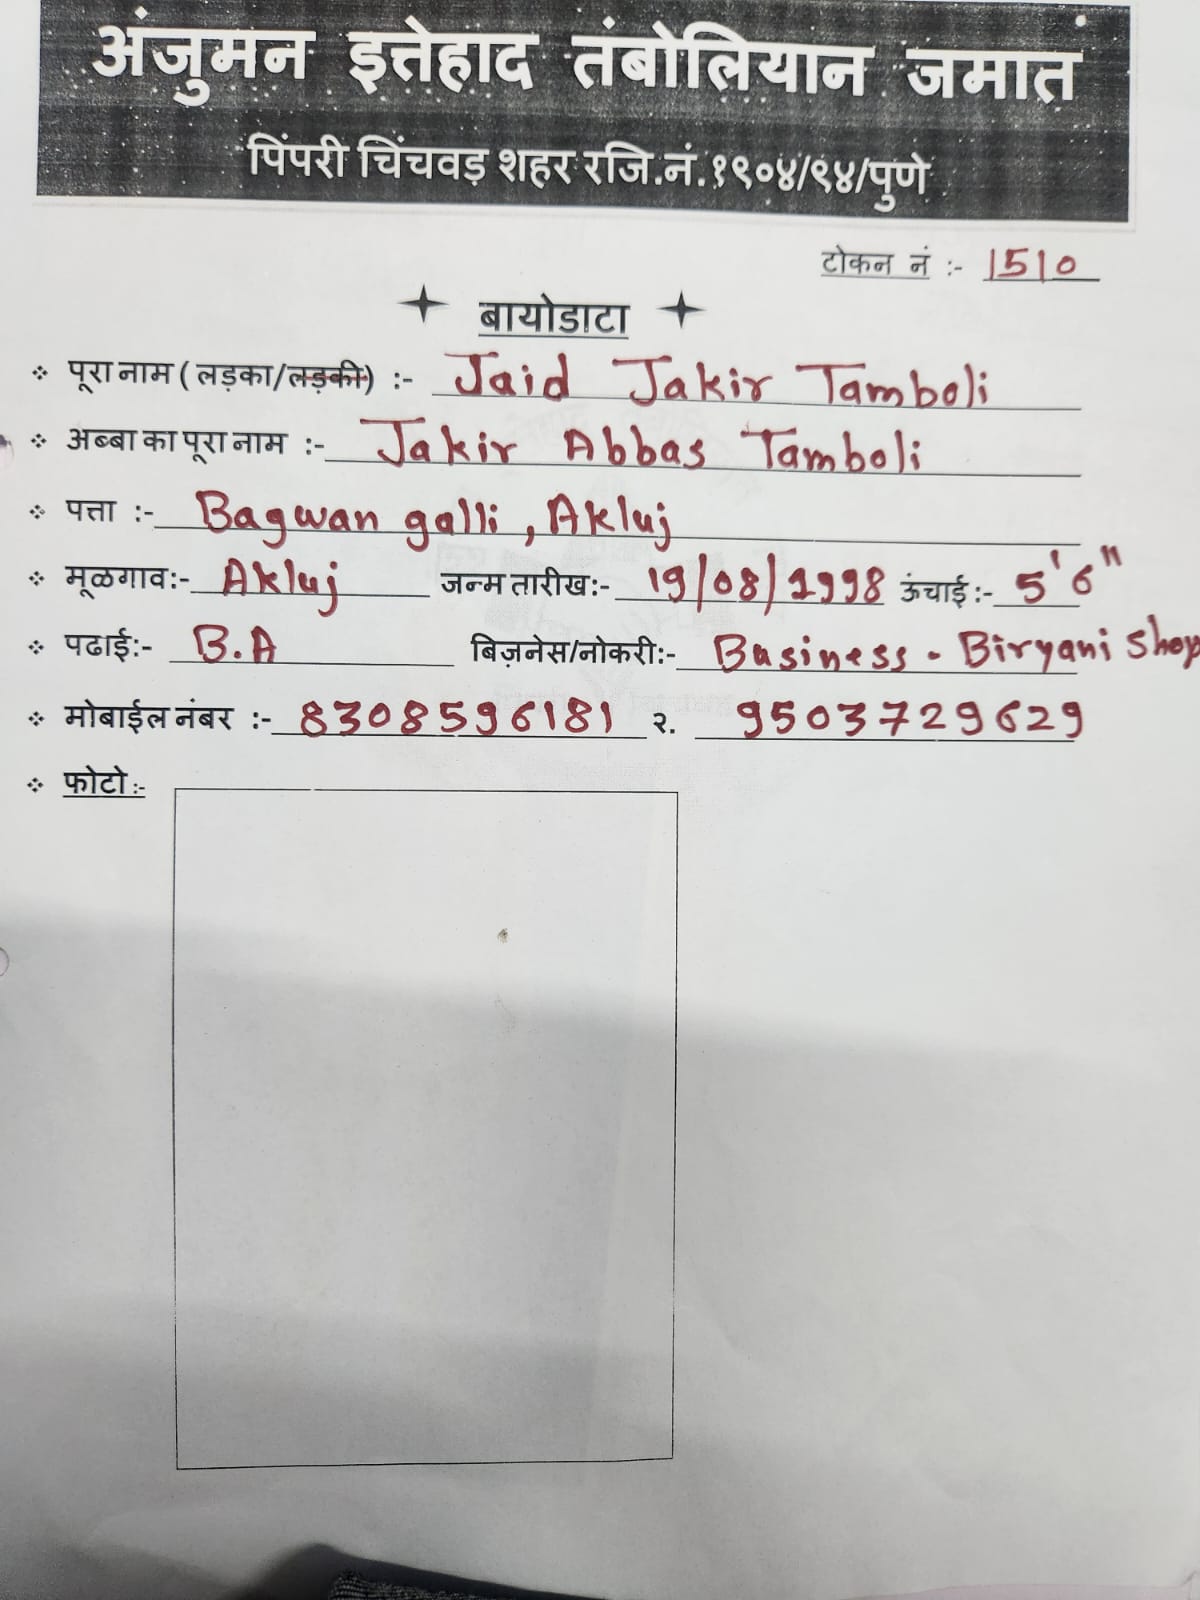 अंजुमन इत्तेहाद तंबोलियान जमात
पिंपरी चिंचवड़ शहर रजि.नं.१९०४/९४/पुणे
टोकन नं :- 1510
बायोडाटा
पूरा नाम ( लड़का/लड़की) :- Jaid Jakir Tamboli
अब्बा का पूरा नाम :- Jakir Abbas Tamboli
पत्ता :- Bagwan galli, Akluj
मूळगाव:- Akluj जन्म तारीख:- 19/08/1998 ऊंचाई:- 5'6"
पढाई:- B.A बिज़नेस/नोकरी:- Business - Biryani Shop
मोबाईल नंबर :- 8308596181 २. 9503729629
फोटो :-